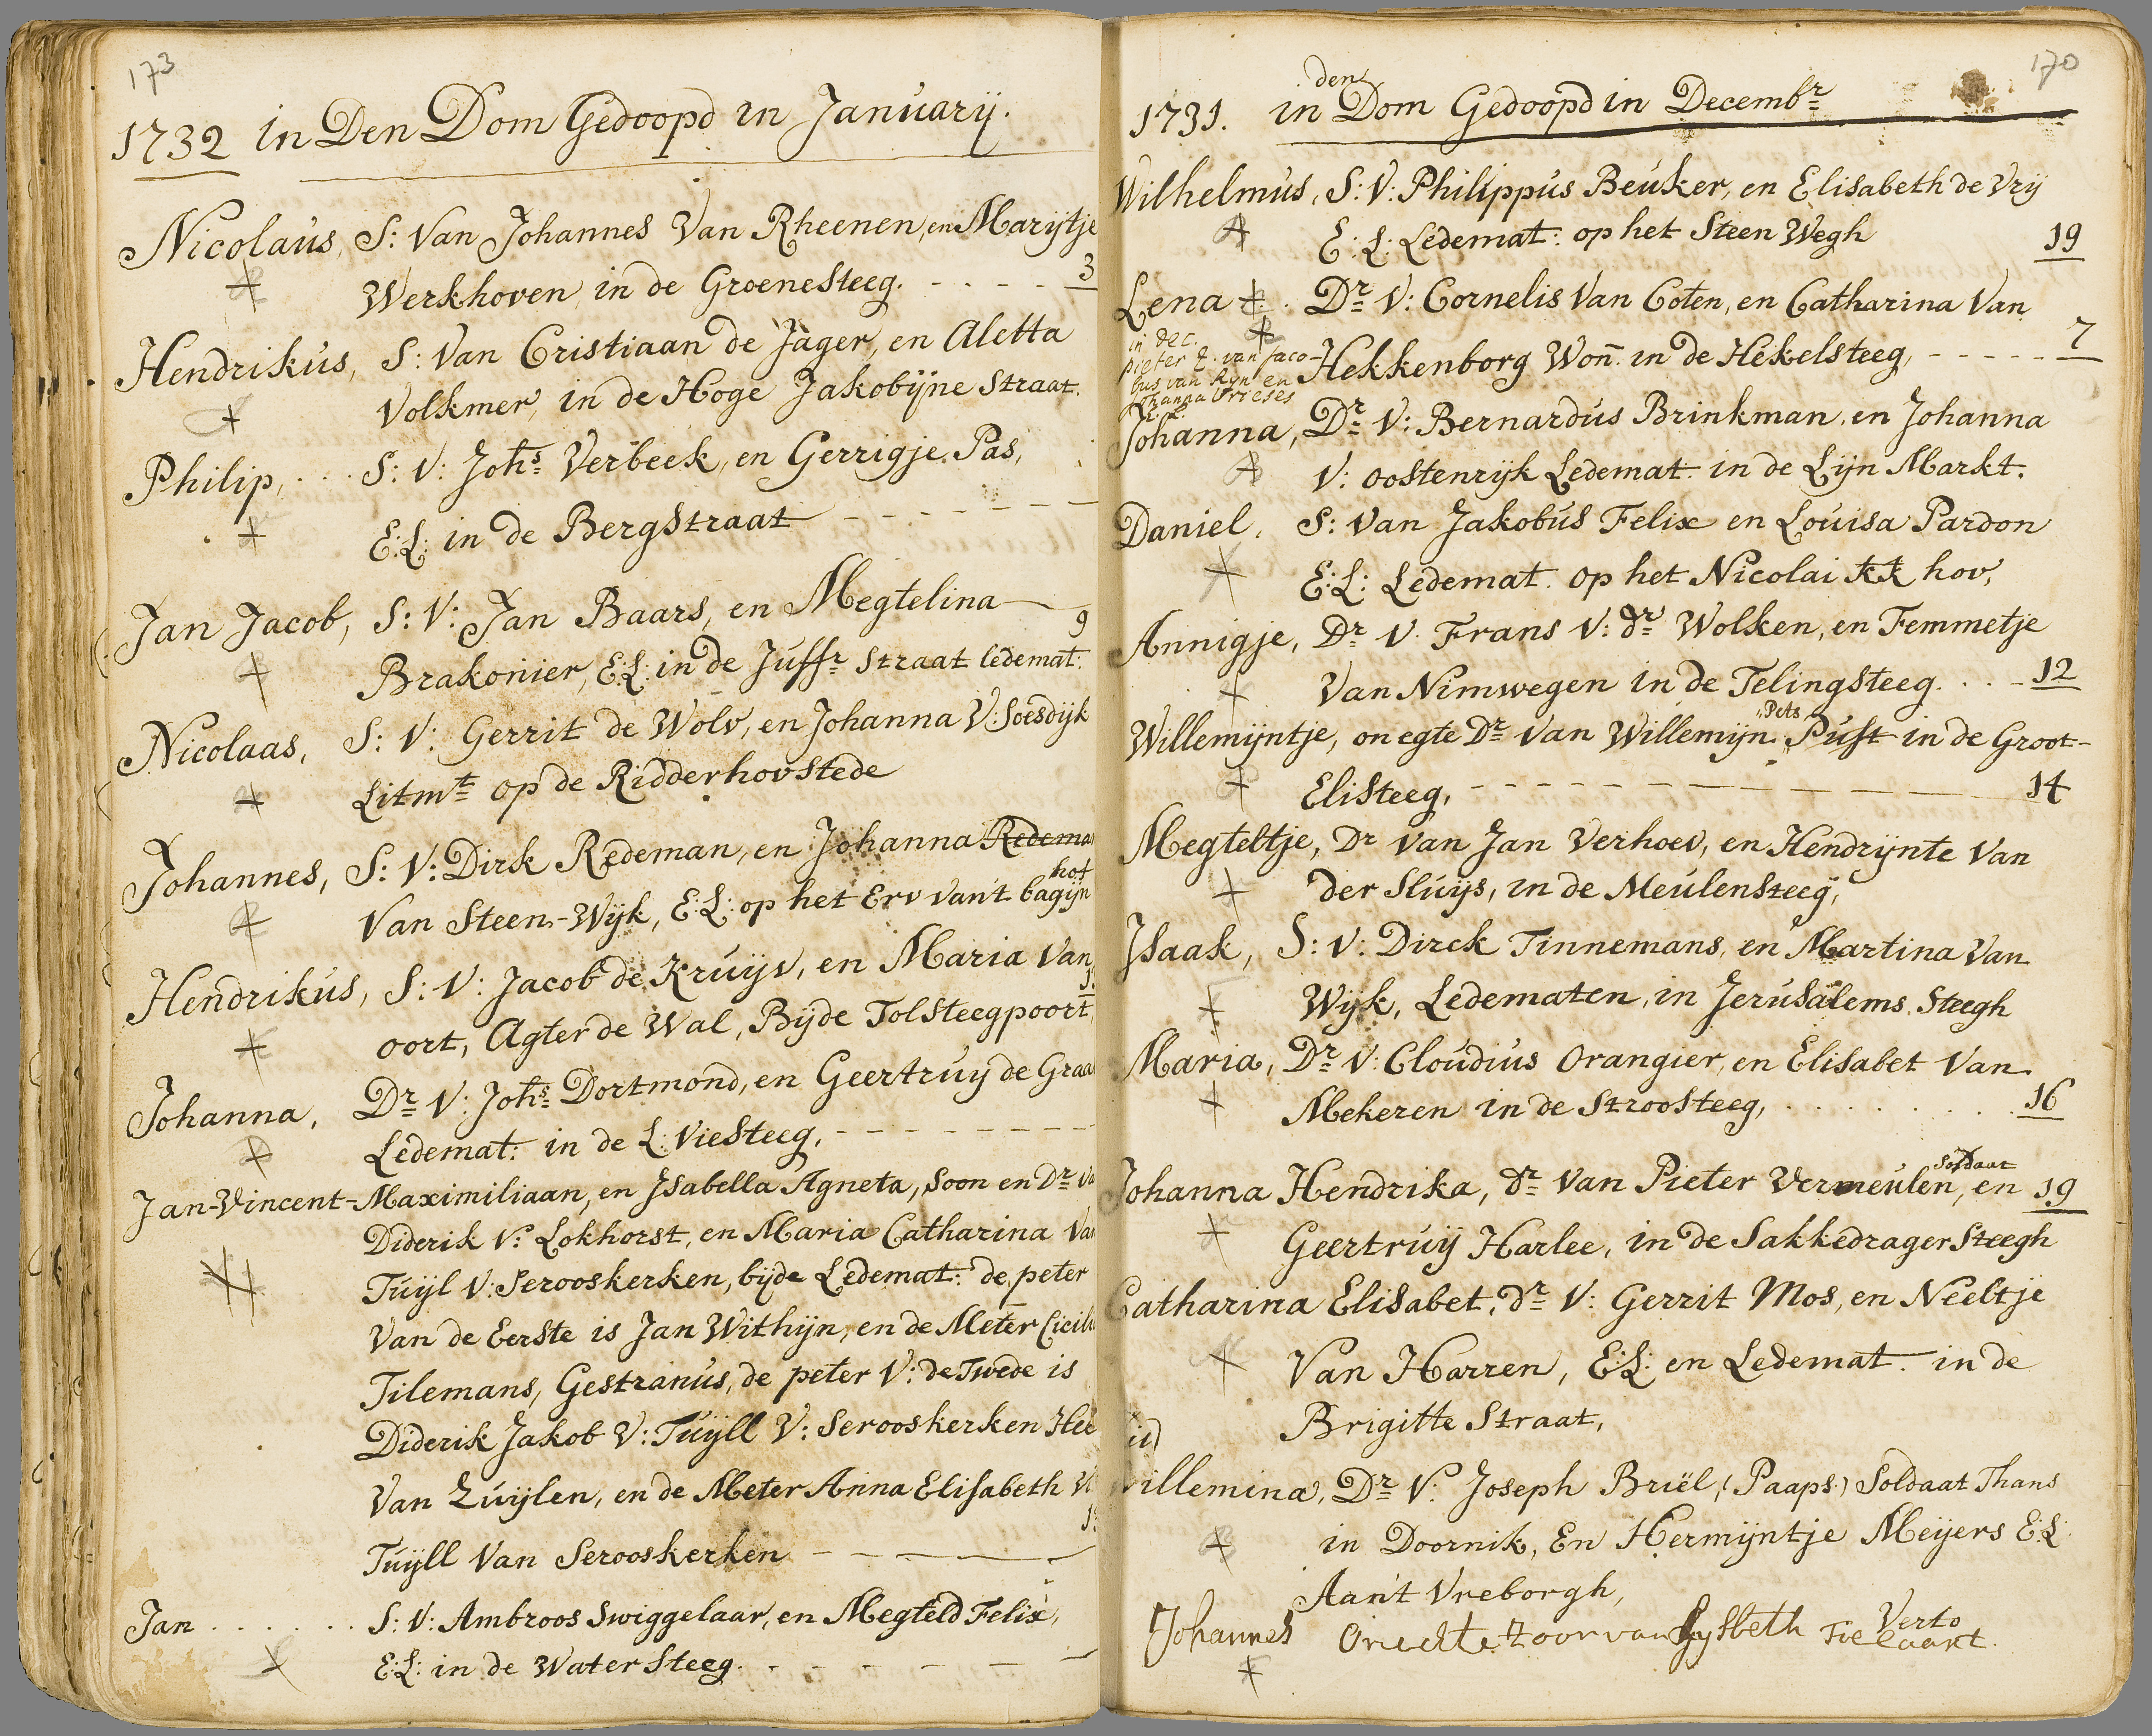 173
1732 in Den Dom Gedoopd in Januarij.
Nicolaus, S: Van Johannes Van Rheenen, en Marijtje
Werkhoven, in de Groenesteeg. - - - - 3
Hendrikus, S: Van Cristiaan de Jager, en Aletta
Volkmer, in de Hoge Jakobijne Straat.
Philip, . . . S: V: Johs Verbeek, en Gerrigje Pas,
E:L: in de Bergstraat - - - - - - -
Jan Jacob, S: V: Jan Baars, en Megtelina
9
Brakonier, E:L: in de Juffr Straat ledemat:
Nicolaas, S: V: Gerrit de Wolv, en Johanna V: Soesdijk
Litmt op de Ridderhovstede
Johannes, S: V: Dirk Redeman, en Johanna Redema
hof
Van Steen-Wijk, E:L: op het Erv van't bagijn
Hendrikus, S: V: Jacob de Kruijv, en Maria Van
oort, Agter de Wal, Bijde Tolsteegpoort
Johanna, Dr V: Johs Dortmond, en Geertruij de Graa
Ledemat: in de L: Viesteeg, - - - - - - - - -
Jan-Vincent-Maximiliaan, en Isabella Agneta, Soon en Dr va
Diderik V: Lokhorst, en Maria Catharina Van
Tuijl V: Serooskerken, bijde Ledemat: de peter
Van de Eerste is Jan Withijn, en de Meter Cicili
Tilemans, Gestranus, de peter V: de Twede is
Diderik Jakob V: Tuijll V: Serooskerken Hee
Van Zuijlen, en de Meter Anna Elisabeth V
Tuijll Van Serooskerken - - - - -
Jan . . . . . . S: V: Ambroos Swiggelaar, en Megteld Felix,
E:L: in de Watersteeg. - - - - - -
170
den
1731. in Dom Gedoopd in Decembr
Wilhelmus, S: V: Philippus Beuker, en Elisabeth de Vrij
E:L: Ledemat: op het Steen Wegh 19
Lena . Dr V: Cornelis Van Coten, en Catharina Van
in dec.
pieter Z. van Jaco-
bus van Ryn en
Johanna Vrieses
E:L:
Hekkenborg Won in de Hekelsteeg, - - - - - 7
Johanna, Dr V: Bernardus Brinkman, en Johanna
V: oostenrijk Ledemat. in de Lijn Markt.
Daniel, S: Van Jakobus Felix en Louisa Pardon
E:L: Ledemat. op het Nicolai kk hov,
Annigje, Dr V. Frans V: dr Wolken, en Femmetje
Van Nimwegen in de Telingsteeg. . . - 12
Pets
Willemijntje, onegte Dr Van Willemijn Pust in de Groot-
Elisteeg, - - - - - - - - - - 14
Megteltje, Dr Van Jan Verhoev, en Hendrijnte Van
der Sluijs, in de Meulensteeg,
Isaak, S: V: Dirck Tinnemans, en Martina Van
Wijk, Ledematen, in Jerusalems Steegh
Maria, Dr V: Cloudius Orangier, en Elisabet Van
Mekeren in de Stroosteeg, . . . . . . . . . 16
Soldaat
Johanna Hendrika, dr Van Pieter Vermeulen, en 19
Geertruij Harlee, in de Sakkedrager Steegh
Catharina Elisabet, dr V: Gerrit Mos, en Neeltje
Van Harren, E:L: en Ledemat. in de
Brigitte Straat,
Willemina, Dr V: Joseph Briël, (Paaps) Soldaat Thans
in Doornik, En Hermijntje Meijers E:L:
Aan't Vreborgh,
Johannes Onechte Zoon van Lysbeth Tielaart.
Verto